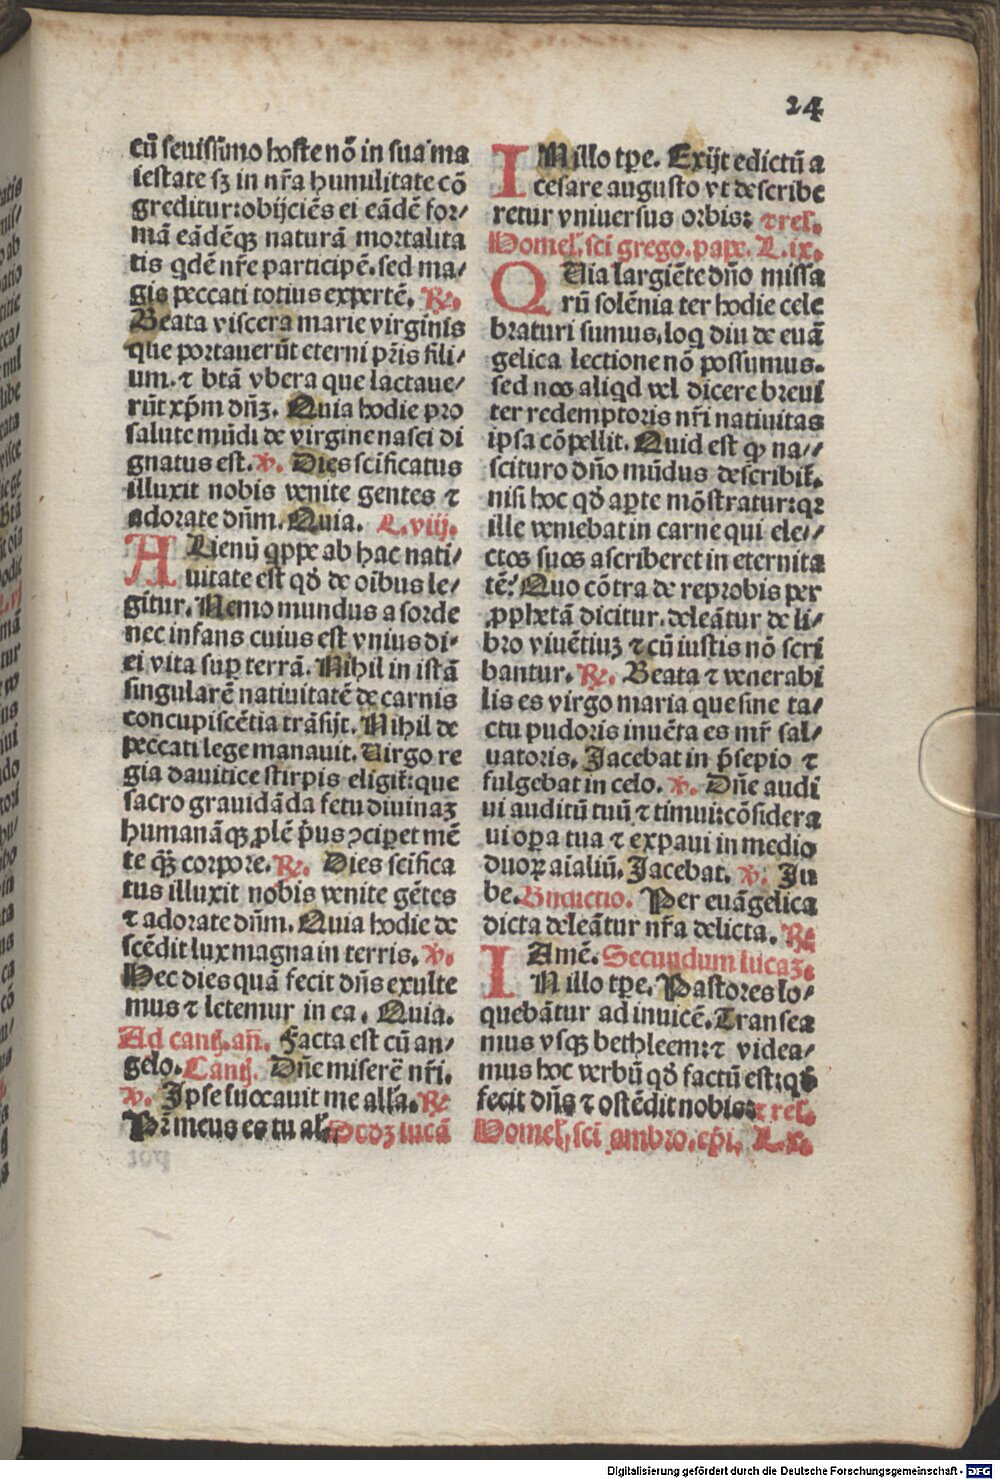 24
cū seuissimo hoste nō in sua ma
iestate sꝫ in nr̄a humilitate cō
greditur: obijciēs ei eādē for⸗
mā eādēqꝫ naturā mortalita
tis qdē nr̄e participē. sed ma⸗
gis peccati totius expertē. ℞.
Beata viscera marie virginis
que portauerūt eterni pr̄is fili⸗
um. ⁊ btā vbera que lactaue⸗
rūt xp̄m dn̄ꝫ. Quia hodie pro
salute mūdi de virgine nasci di
gnatus est. ℣. Dies scificatus
illuxit nobis venite gentes ⁊
adorate dn̄m. Quia. L. viij.
ALienū qppe ab hac nati⸗
uitate est qd̄ de oībus le⸗
gitur. Nemo mundus a sorde
nec infans cuius est vnius di⸗
ei vita suꝑ terrā. Nihil in istā
singularē natiuitatē de carnis
concupiscētia trāsijt. Nihil de
peccati lege manauit. Uirgo re
gia dauitice stirpis eligit̄: que
sacro grauidāda fetu diuinaꝫ
humanāqꝫ ꝓlē p̄us ↄciꝑet mē
te qꝫ̄ corpore. ℞. Dies scifica
tus illuxit nobis venite gētes
⁊ adorate dn̄m. Quia hodie de
scēdit lux magna in terris. ℣.
Hec dies quā fecit dn̄s exulte
mus ⁊ letemur in ea. Quia.
Ad canť. añ. Facta est cū an⸗
gelo. Canť. Dn̄e miserē nr̄i.
℣. Ipse iuocauit me alla. ℞
Pr̄ meus es tu al. Scdꝫ lucā
IN illo tp̄e. Exijt edictū a
cesare augusto vt describe
retur vniuersus orbis: ⁊ rel.
Homel. sci grego. pape. L. ix.
QUia largiēte dn̄o missa
rū solēnia ter hodie cele
braturi sumus, loq diu de euā
gelica lectione nō possumus.
sed nos aliqd vel dicere breui
ter redemptoris nr̄i natiuitas
ipsa cōpellit. Quid est ꝙ na⸗
scituro dn̄o mūdus describit̄.
nisi hoc qd̄ aꝑte mōstratur: qꝛ
ille veniebat in carne qui ele⸗
ctos suos ascriberet in eternita
tē. Quo cōtra de reprobis per
ꝓphetā dicitur. deleātur de li⸗
bro viuētiuꝫ ⁊ cū iustis nō scri
bantur. ℞. Beata ⁊ venerabi
lis es virgo maria que sine ta⸗
ctu pudoris inuēta es mr̄ sal⸗
uatoris. Jacebat in p̄sepio ⁊
fulgebat in celo. ℣. Dn̄e audi
ui auditū tuū ⁊ timui: cōsidera
ui oꝑa tua ⁊ expaui in medio
duoꝝ aialiū. Jacebat. ℣. Iu
be. Bn̄dictio. Per euāgelica
dicta deleātur nr̄a delicta. ℞
Amē. Secundum lucaꝫ.
IN illo tp̄e. Pastores lo⸗
quebātur ad inuicē. Transea
mus vsqꝫ bethleem: ⁊ videa⸗
mus hoc verbū qd̄ factū est: qd̄
fecit dn̄s ⁊ ostēdit nobis: ⁊ rel.
Homel. sci ambro. ep̄i. L. x.
Digitalisierung gefördert durch die Deutsche Forschungsgemeinschaft - DFG